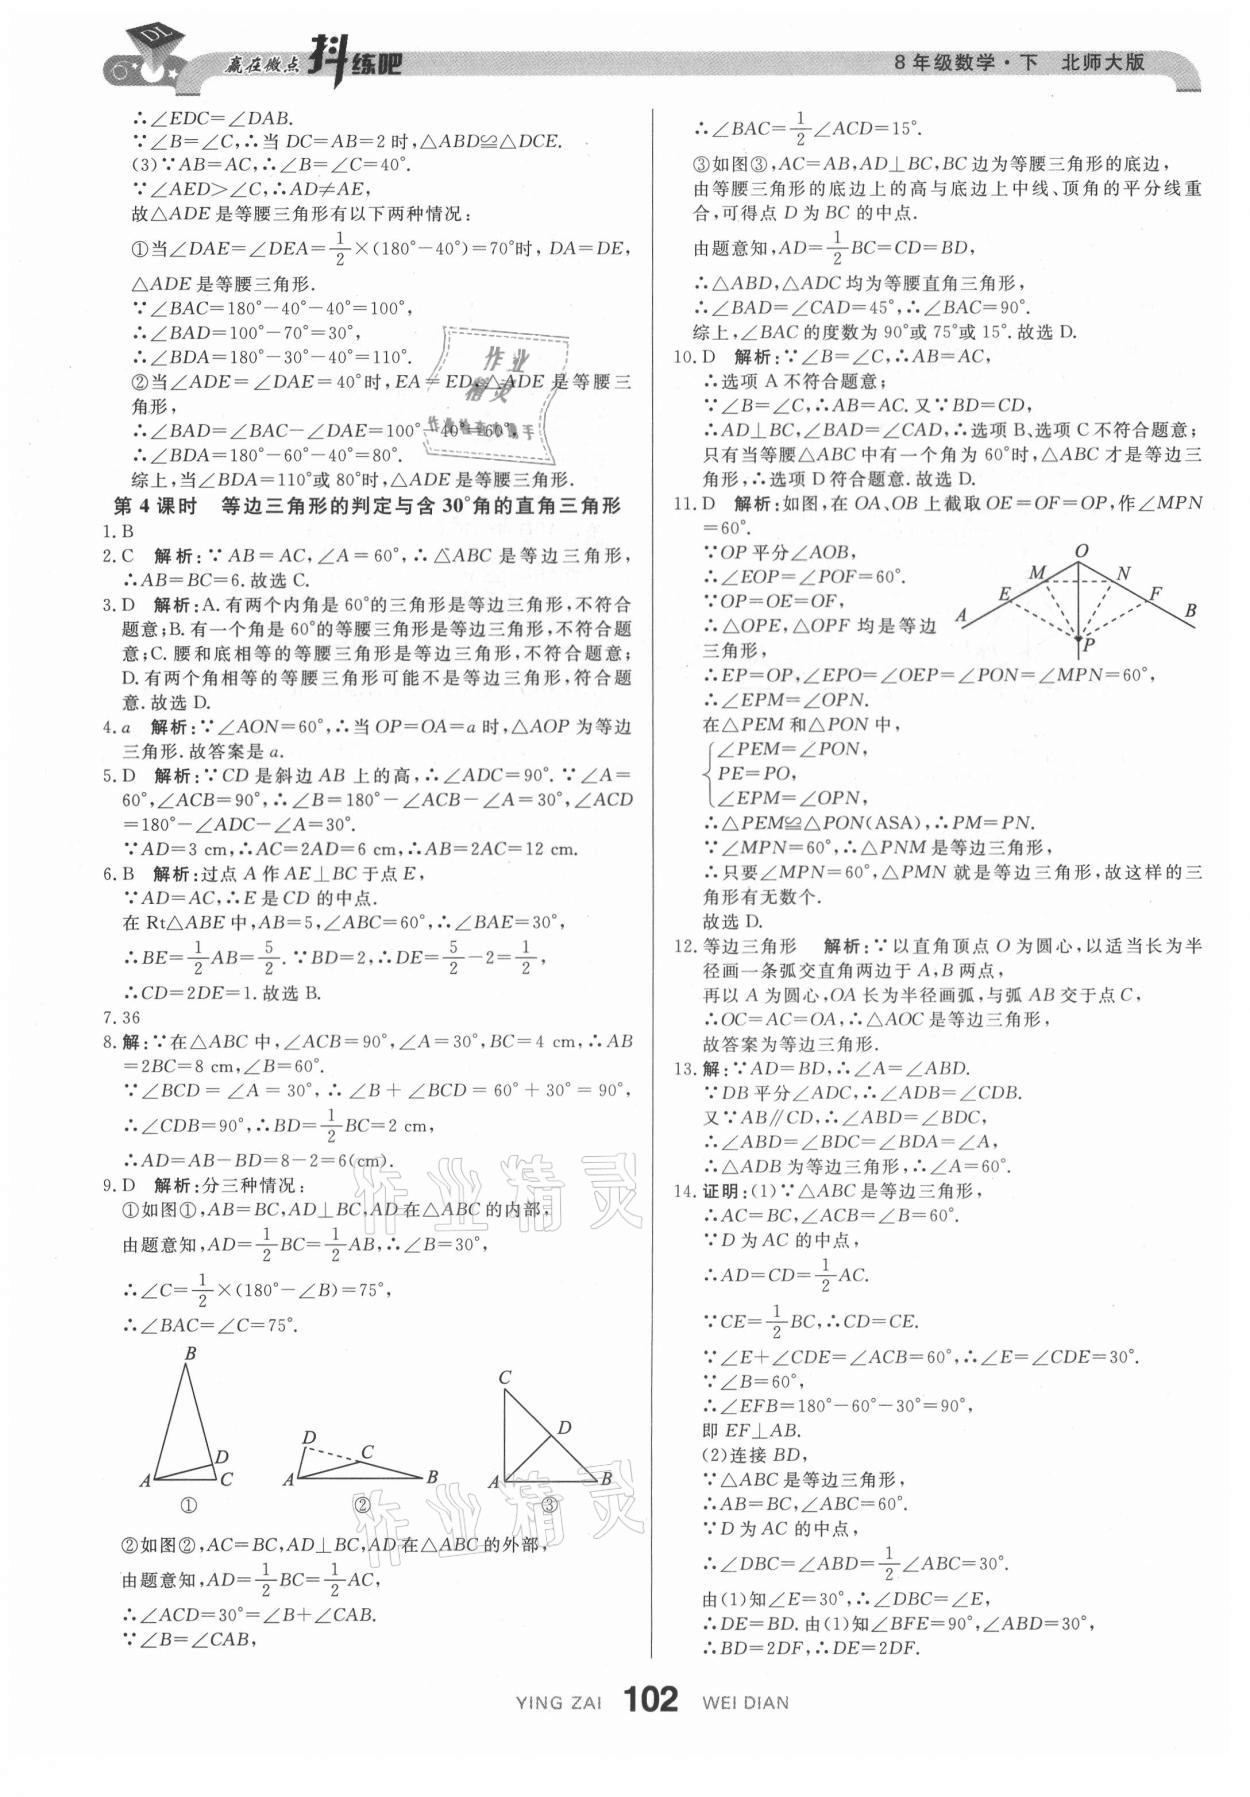 DL
赢在微点 抖练吧
8年级数学·下 北师大版
∴∠EDC=∠DAB.
∵∠B=∠C,∴当 DC=AB=2 时,△ABD≌△DCE.
(3)∵AB=AC,∴∠B=∠C=40°.
∵∠AED>∠C,∴AD≠AE,
故△ADE 是等腰三角形有以下两种情况:
①当∠DAE=∠DEA=1/2×(180°-40°)=70°时,DA=DE,
△ADE 是等腰三角形.
∵∠BAC=180°-40°-40°=100°,
∴∠BAD=100°-70°=30°,
∴∠BDA=180°-30°-40°=110°.
②当∠ADE=∠DAE=40°时,EA=ED,△ADE 是等腰三
角形,
∴∠BAD=∠BAC-∠DAE=100°-40°=60°,
∴∠BDA=180°-60°-40°=80°.
综上,当∠BDA=110°或 80°时,△ADE 是等腰三角形.
第 4 课时 等边三角形的判定与含 30°角的直角三角形
1. B
2. C 解析:∵AB=AC,∠A=60°,∴△ABC 是等边三角形,
∴AB=BC=6.故选 C.
3. D 解析:A.有两个内角是 60°的三角形是等边三角形,不符合
题意;B.有一个角是 60°的等腰三角形是等边三角形,不符合题
意;C.腰和底相等的等腰三角形是等边三角形,不符合题意;
D.有两个角相等的等腰三角形可能不是等边三角形,符合题
意.故选 D.
4. a 解析:∵∠AON=60°,∴当 OP=OA=a 时,△AOP 为等边
三角形.故答案是 a.
5. D 解析:∵CD 是斜边 AB 上的高,∴∠ADC=90°.∵∠A=
60°,∠ACB=90°,∴∠B=180°-∠ACB-∠A=30°,∠ACD
=180°-∠ADC-∠A=30°.
∵AD=3 cm,∴AC=2AD=6 cm,∴AB=2AC=12 cm.
6. B 解析:过点 A 作 AE⊥BC 于点 E,
∵AD=AC,∴E 是 CD 的中点.
在 Rt△ABE 中,AB=5,∠ABC=60°,∴∠BAE=30°,
∴BE=1/2AB=5/2.∵BD=2,∴DE=5/2-2=1/2,
∴CD=2DE=1.故选 B.
7. 36
8. 解:∵在△ABC 中,∠ACB=90°,∠A=30°,BC=4 cm,∴AB
=2BC=8 cm,∠B=60°.
∵∠BCD=∠A=30°,∴∠B+∠BCD=60°+30°=90°,
∴∠CDB=90°,∴BD=1/2BC=2 cm,
∴AD=AB-BD=8-2=6(cm).
9. D 解析:分三种情况:
①如图①,AB=BC,AD⊥BC,AD 在△ABC 的内部,
由题意知,AD=1/2BC=1/2AB,∴∠B=30°,
∴∠C=1/2×(180°-∠B)=75°,
∴∠BAC=∠C=75°.
B
D
A C
①
D
C
A B
②
C
D
A B
③
②如图②,AC=BC,AD⊥BC,AD 在△ABC 的外部,
由题意知,AD=1/2BC=1/2AC,
∴∠ACD=30°=∠B+∠CAB.
∵∠B=∠CAB,
∴∠BAC=1/2∠ACD=15°.
③如图③,AC=AB,AD⊥BC,BC 边为等腰三角形的底边,
由等腰三角形的底边上的高与底边上中线、顶角的平分线重
合,可得点 D 为 BC 的中点.
由题意知,AD=1/2BC=CD=BD,
∴△ABD,△ADC 均为等腰直角三角形,
∴∠BAD=∠CAD=45°,∴∠BAC=90°.
综上,∠BAC 的度数为 90°或 75°或 15°.故选 D.
10. D 解析:∵∠B=∠C,∴AB=AC,
∴选项 A 不符合题意;
∵∠B=∠C,∴AB=AC.又∵BD=CD,
∴AD⊥BC,∠BAD=∠CAD,∴选项 B、选项 C 不符合题意;
只有当等腰△ABC 中有一个角为 60°时,△ABC 才是等边三
角形,∴选项 D 符合题意.故选 D.
11. D 解析:如图,在 OA、OB 上截取 OE=OF=OP,作∠MPN
=60°.
∵OP 平分∠AOB,
∴∠EOP=∠POF=60°.
∵OP=OE=OF,
∴△OPE,△OPF 均是等边
三角形,
O
M N
E F
A B
P
∴EP=OP,∠EPO=∠OEP=∠PON=∠MPN=60°,
∴∠EPM=∠OPN.
在△PEM 和△PON 中,
∠PEM=∠PON,
PE=PO,
∠EPM=∠OPN,
∴△PEM≌△PON(ASA),∴PM=PN.
∵∠MPN=60°,∴△PNM 是等边三角形,
∴只要∠MPN=60°,△PMN 就是等边三角形,故这样的三
角形有无数个.
故选 D.
12. 等边三角形 解析:∵以直角顶点 O 为圆心,以适当长为半
径画一条弧交直角两边于 A,B 两点,
再以 A 为圆心,OA 长为半径画弧,与弧 AB 交于点 C,
∴OC=AC=OA,∴△AOC 是等边三角形,
故答案为等边三角形.
13. 解:∵AD=BD,∴∠A=∠ABD.
∵DB 平分∠ADC,∴∠ADB=∠CDB.
又∵AB∥CD,∴∠ABD=∠BDC,
∴∠ABD=∠BDC=∠BDA=∠A,
∴△ADB 为等边三角形,∴∠A=60°.
14. 证明:(1)∵△ABC 是等边三角形,
∴AC=BC,∠ACB=∠B=60°.
∵D 为 AC 的中点,
∴AD=CD=1/2AC.
∵CE=1/2BC,∴CD=CE.
∵∠E+∠CDE=∠ACB=60°,∴∠E=∠CDE=30°.
∵∠B=60°,
∴∠EFB=180°-60°-30°=90°,
即 EF⊥AB.
(2)连接 BD,
∵△ABC 是等边三角形,
∴AB=BC,∠ABC=60°.
∵D 为 AC 的中点,
∴∠DBC=∠ABD=1/2∠ABC=30°.
由(1)知∠E=30°,∴∠DBC=∠E,
∴DE=BD.由(1)知∠BFE=90°,∠ABD=30°,
∴BD=2DF,∴DE=2DF.
作业
精灵
作业精灵
作业精灵
YING ZAI 102 WEI DIAN